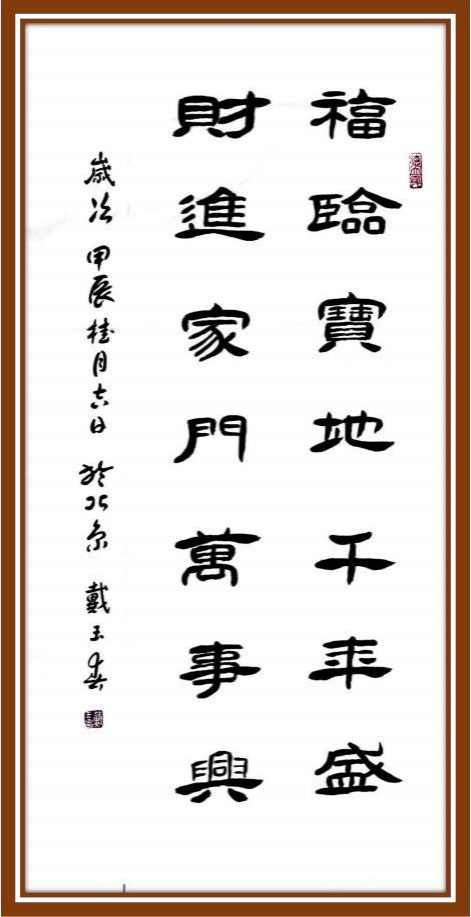 福臨寶地千年盛
財進家門萬事興
歲次甲辰桂月吉日於北京戴玉春